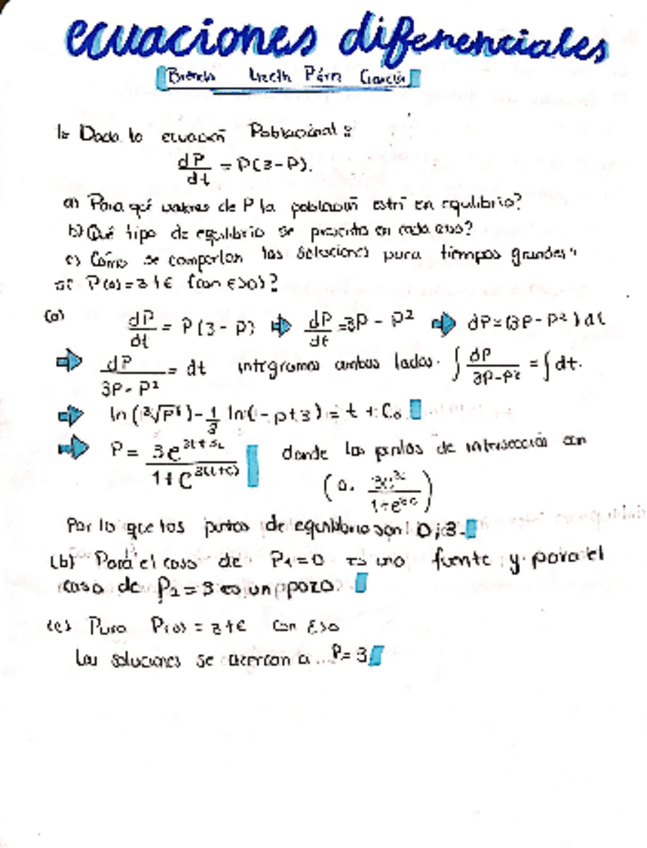 ecuaciones diferenciales
Brenda Lizeth García
1: Dada la ecuación Poblacional:
dP/dt = P(3-P).
a) Para qué valores de P la población está en equilibrio?
b) Qué tipo de equilibrio se presenta en cada caso?
c) Cómo se comportan las soluciones para tiempos grandes
si P(0)=3+ε (con ε>0)?
(a) dP/dt = P(3-P) ⇒ dP/dt = 3P - P² ⇒ dP=(3P-P²)dt
⇒ dP/(3P-P²) = dt integramos ambos lados. ∫ dP/(3P-P²) = ∫ dt.
⇒ ln(∛P) - 1/3 ln(-p+3) = t + C
⇒ P = donde los puntos de intersección son
Por lo que los puntos de equilibrio son: 0, 3.
(b) Para el caso de P₁=0 es una fuente y para el
caso de P₂=3 es un pozo.
(c) Para P(0)=3+ε con ε>0
Las soluciones se acercan a P=3